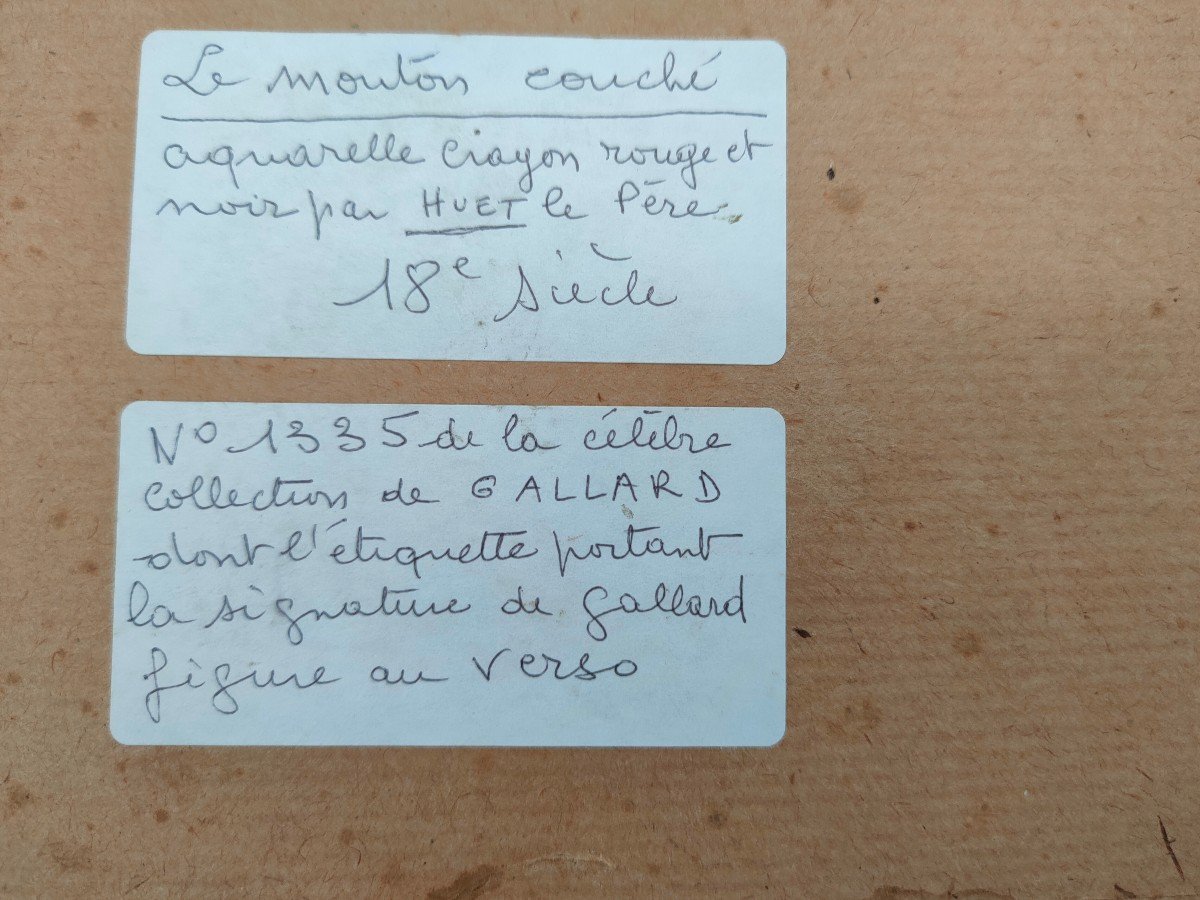 Le mouton couché
aquarelle crayon rouge et
noir par HUET le Père
18e siècle
No 1335 de la célèbre
collection de GALLARD
dont l'étiquette portant
la signature de gallard
figure au verso